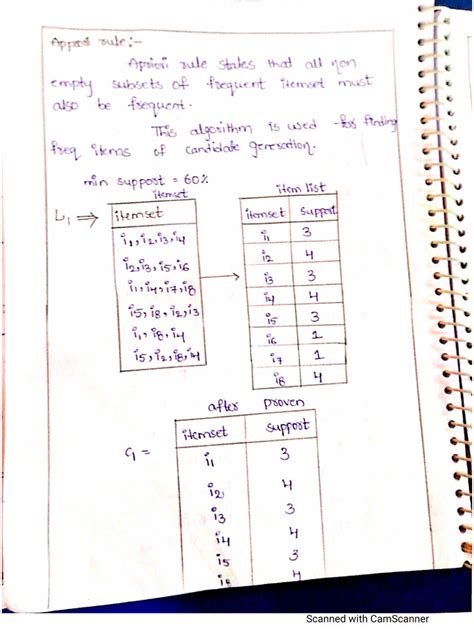 Appori rule:-
Apriori rule states that all non
empty subsets of frequent itemset must
also be frequent.
This algorithm is used for finding
freq items of candidate generation.
min support = 60%
itemset
item list
L1 ⇒ itemset
i1, i2, i3, i4
i2, i3, i5, i6
i1, i4, i7, i8
i5, i8, i2, i3
i1, i8, i4
i5, i2, i8, i4
itemset support
i1 3
i2 4
i3 3
i4 4
i5 3
i6 1
i7 1
i8 4
after proven
itemset support
C1 =
i1 3
i2 4
i3 3
i4 4
i5 3
i8 4
Scanned with CamScanner